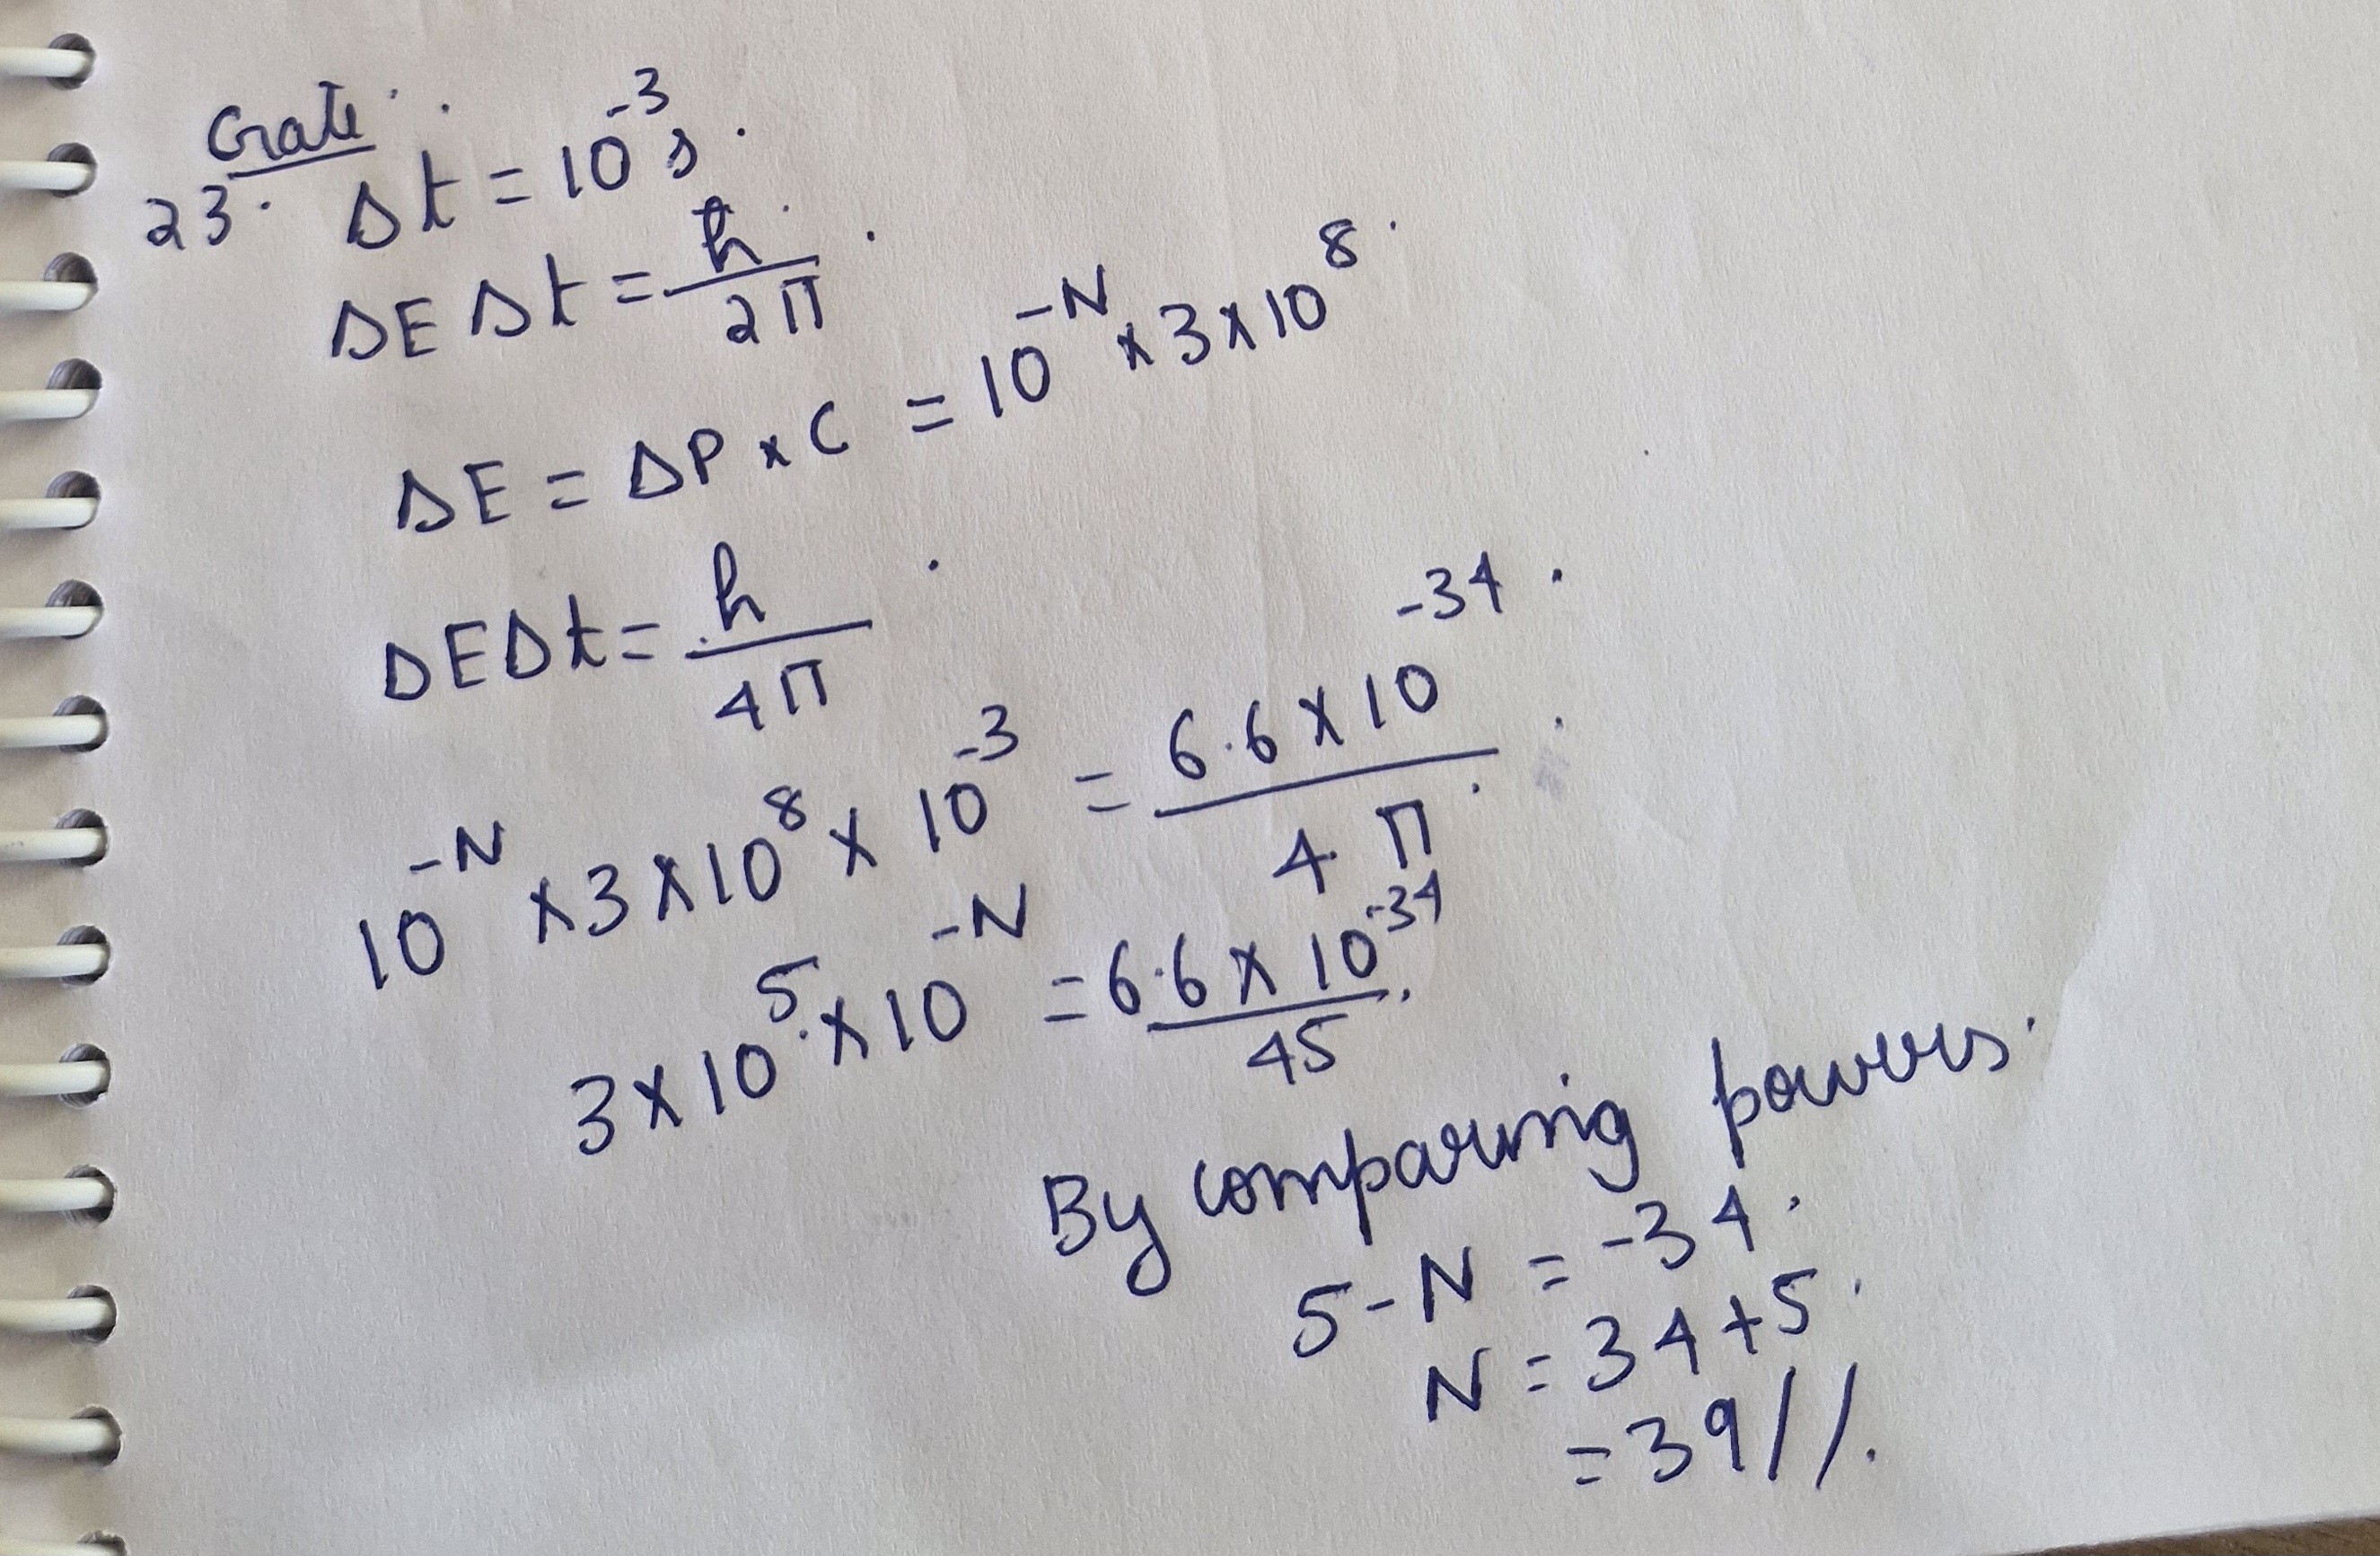 Gate
23. Δt = 10⁻³ s.
ΔE Δt = h/2π.
ΔE = ΔP × C = 10⁻ᴺ × 3 × 10⁸.
ΔEΔt = h/4π.
10⁻ᴺ × 3 × 10⁸ × 10⁻³ = 6.6 × 10⁻³⁴/4π.
3 × 10⁵ × 10⁻ᴺ = 6.6 × 10⁻³⁴/45.
By comparing powers.
5 - N = -34.
N = 34 + 5.
= 39//.